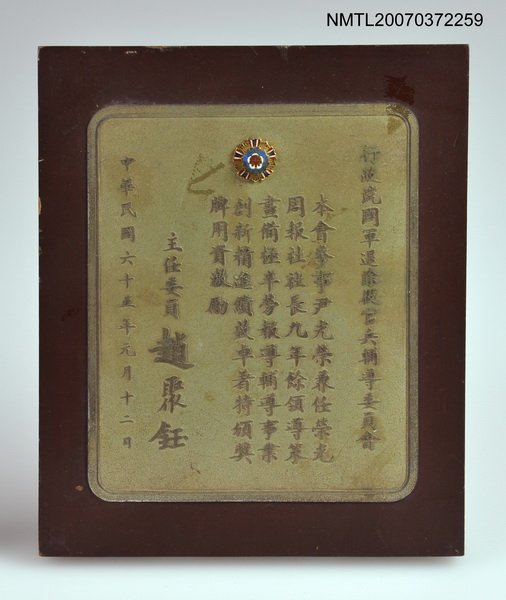 NMTL20070372259
行政院國軍退除役官兵輔導委員會
本會參事尹光榮兼任榮光
周報社社長九年餘領導策
畫備極辛勞報導輔導事業
創新精進績效卓著特頒獎
牌用資激勵
主任委員 趙聚鈺
中華民國六十五年元月十二日